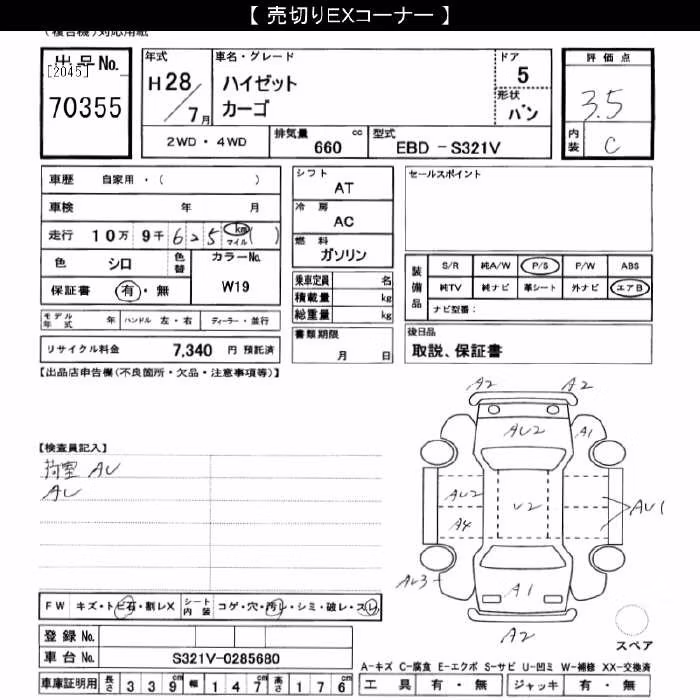 【 売切りEXコーナー 】
(複合機)対応用紙
出品No.
[2045]
70355
年式
H28/7月
車名・グレード
ハイゼット
カーゴ
ドア
5
形状
バン
評価点
3.5
内装
C
2WD・4WD
排気量 660 cc
型式 EBD-S321V
車歴 自家用・( )
車検 年 月
走行 10万 9千 6 2 5 km マイル ( )
色 シロ
色替
カラーNo.
W19
保証書 有・無
モデル年式 年
ハンドル 左・右
ディーラー・並行
リサイクル料金 7,340 円 預託済
シフト
AT
冷房
AC
燃料
ガソリン
乗車定員 名
積載量 kg
総重量 kg
書類期限
月 日
セールスポイント
装備品
S/R 純A/W P/S P/W ABS
純TV 純ナビ 革シート 外ナビ エアB
ナビ型番:
後日品
取説、保証書
【出品店申告欄(不良箇所・欠品・注意事項等)】
【検査員記入】
荷室 AU
AU
A2
A2
AU2
A1
AU2
U2
A4
AU1
AU3
A1
A2
スペア
FW キズ・トビ石・割レX
シート内装 コゲ・穴・汚レ・シミ・破レ・スレ
登録No.
車台No. S321V-0285680
車庫証明用 長さ 339cm 幅 147cm 高さ 176cm
A-キズ C-腐食 E-エクボ S-サビ U-凹ミ W-補修 XX-交換済
工具 有・無 ジャッキ 有・無